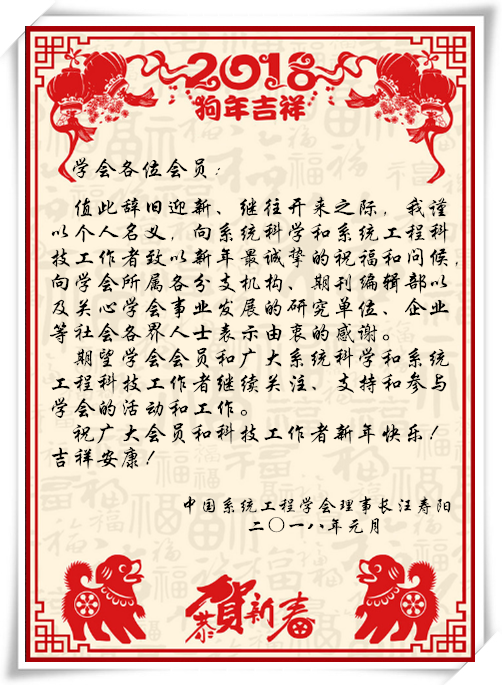 2018
狗年吉祥
学会各位会员：
值此辞旧迎新、继往开来之际，我谨
以个人名义，向系统科学和系统工程科
技工作者致以新年最诚挚的祝福和问候，
向学会所属各分支机构、期刊编辑部以
及关心学会事业发展的研究单位、企业
等社会各界人士表示由衷的感谢。
期望学会会员和广大系统科学和系统
工程科技工作者继续关注、支持和参与
学会的活动和工作。
祝广大会员和科技工作者新年快乐！
吉祥安康！
中国系统工程学会理事长汪寿阳
二〇一八年元月
恭贺新春